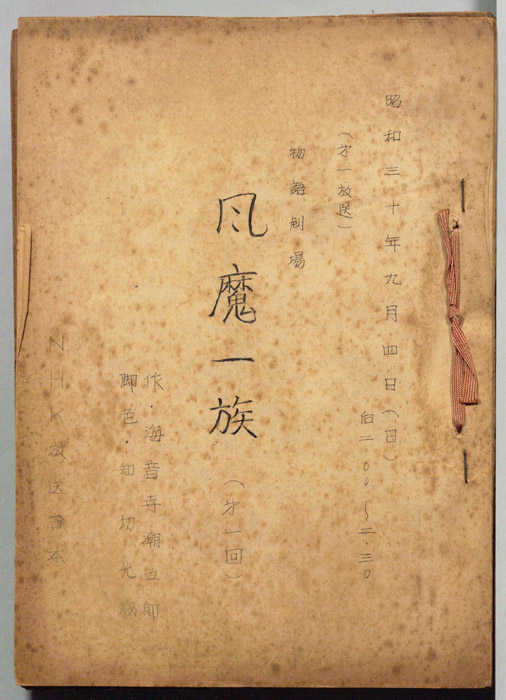 昭和三十年九月四日(日)
后二.〇〇～二.三〇
(才一放送)
物語劇場
風魔一族
(才一回)
作・海音寺潮五郎
脚色・知切光歳
NHK放送台本